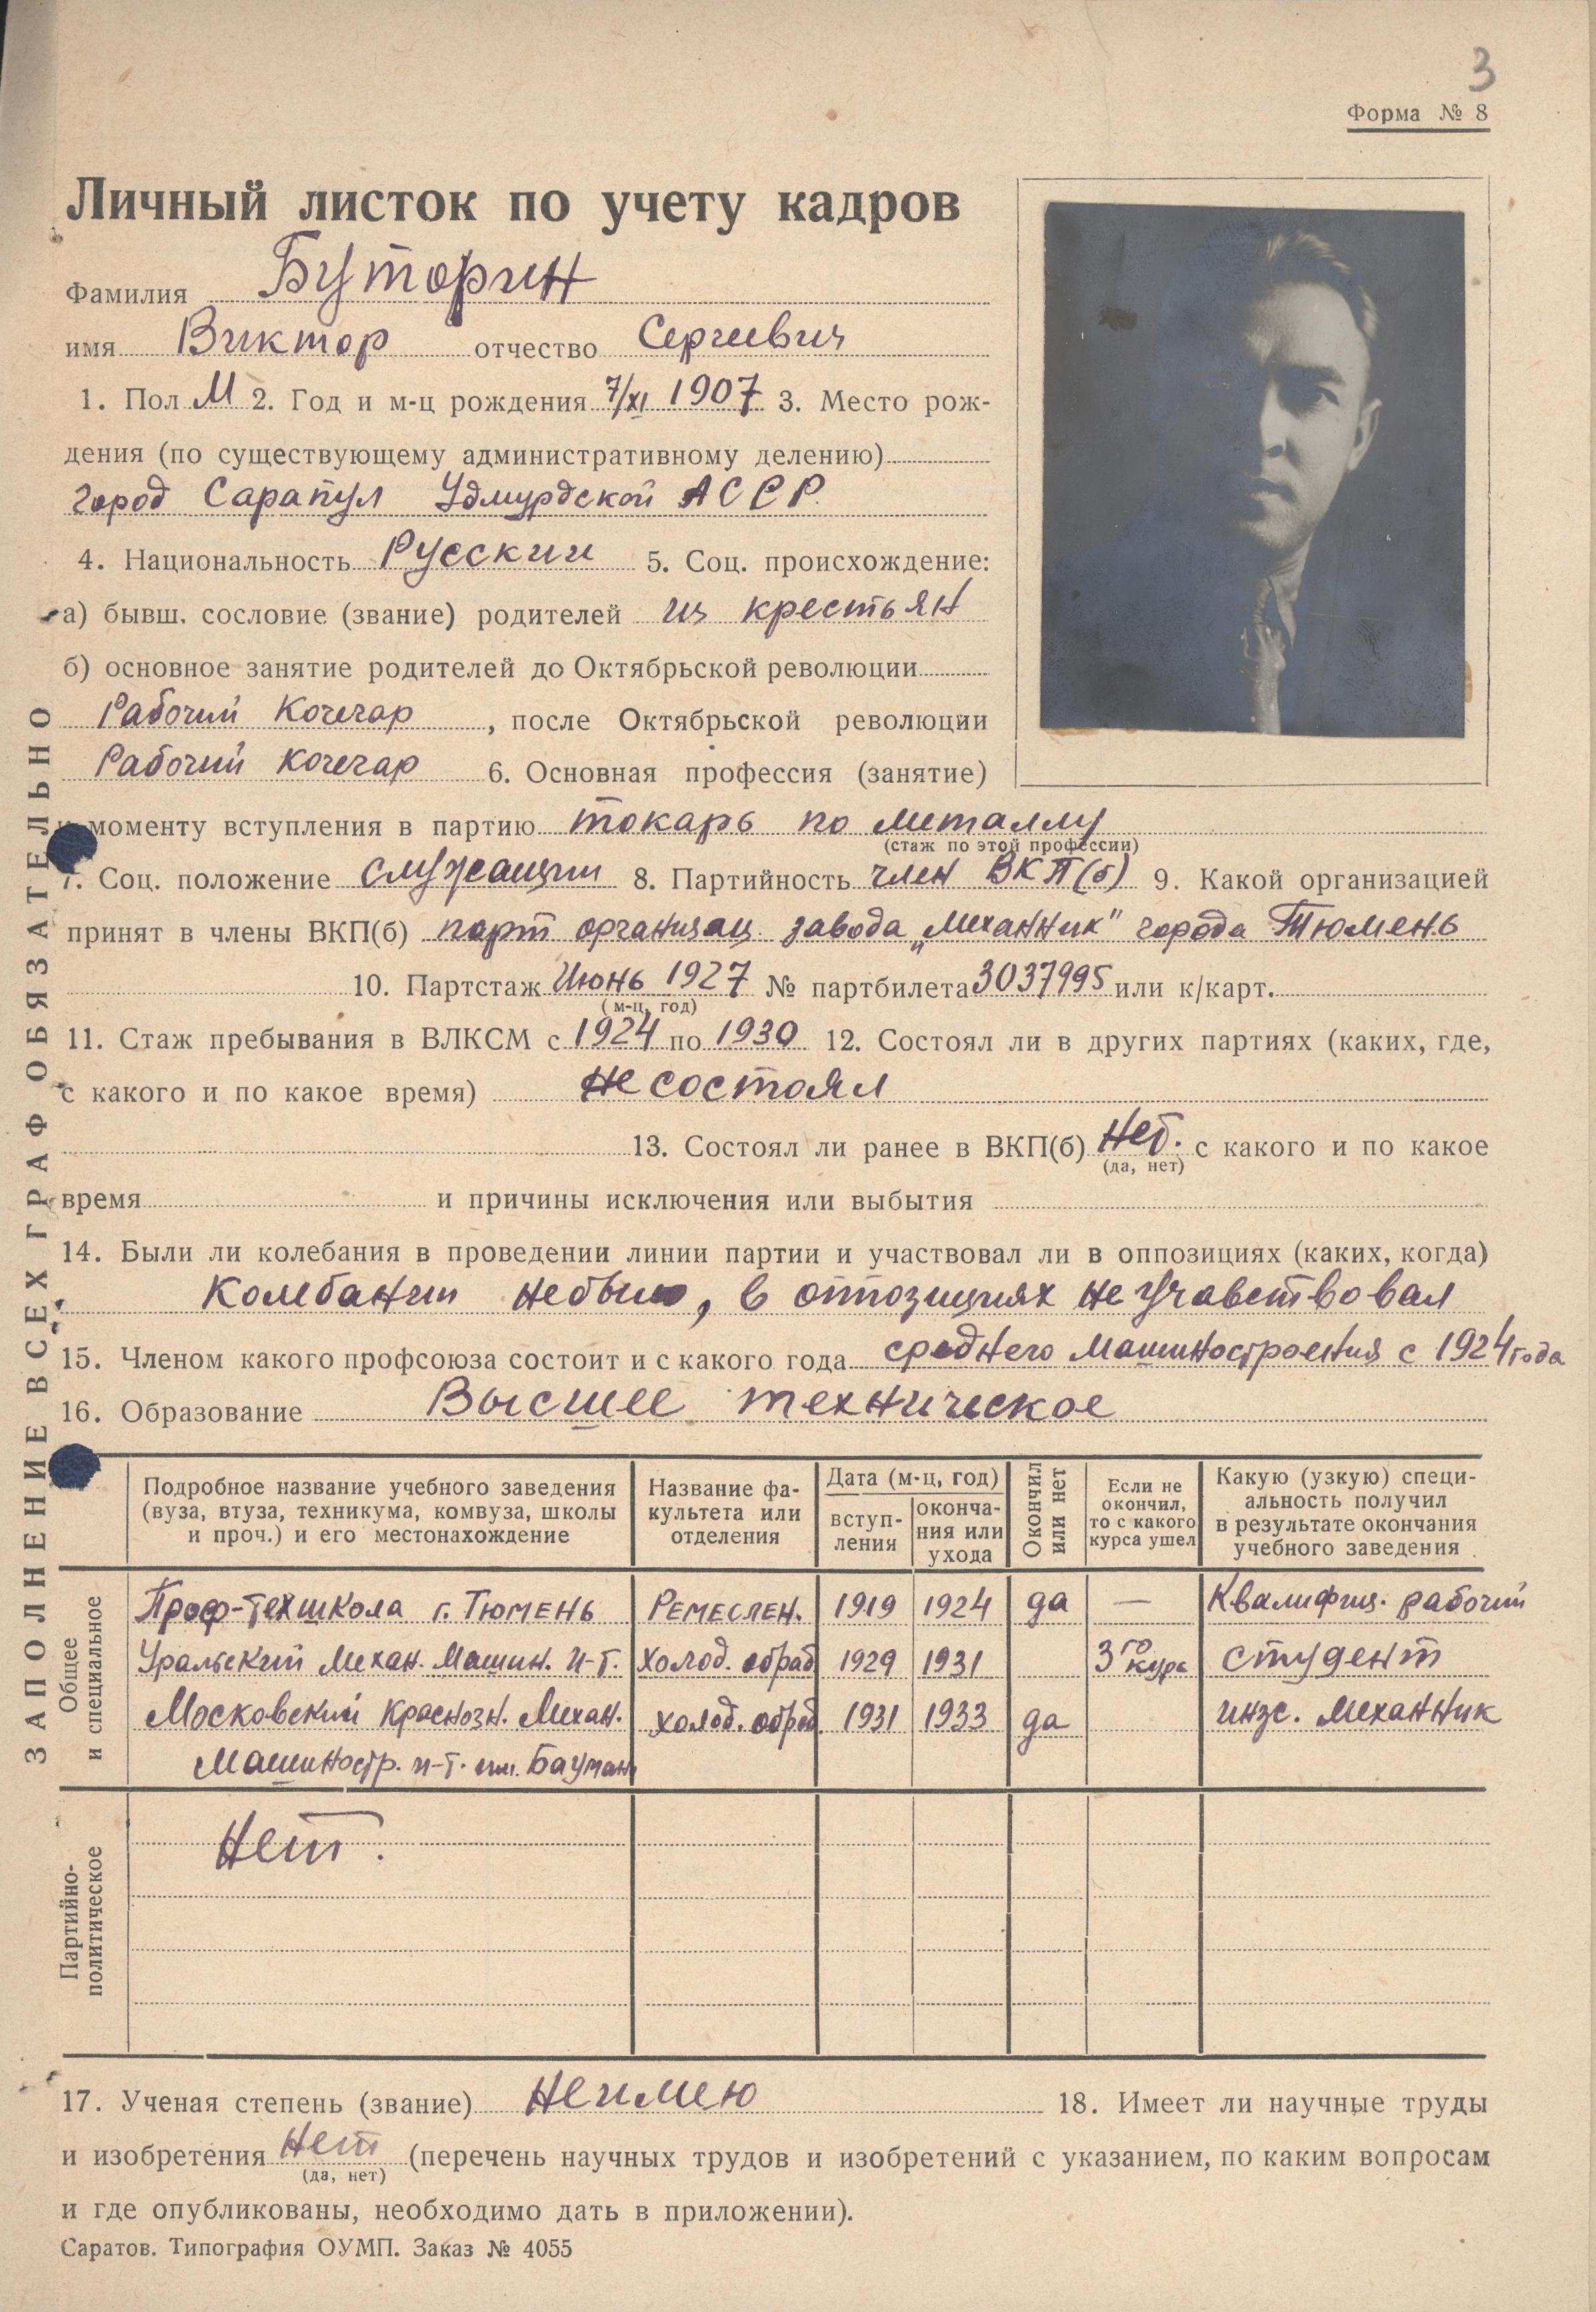 3
Форма № 8
Личный листок по учету кадров
Фамилия Буторин
имя Виктор отчество Сергеевич
1. Пол М 2. Год и м-ц рождения 7/XI 1907 3. Место рож-
дения (по существующему административному делению)
город Сарапул Удмурдской АССР.
4. Национальность Русский 5. Соц. происхождение:
а) бывш. сословие (звание) родителей из крестьян
б) основное занятие родителей до Октябрьской революции
Рабочий Кочегар, после Октябрьской революции
Рабочий Кочегар 6. Основная профессия (занятие)
к моменту вступления в партию токарь по металлу
(стаж по этой профессии)
7. Соц. положение служащий 8. Партийность член ВКП(б) 9. Какой организацией
принят в члены ВКП(б) парт организац. завода „Механник" города Тюмень
10. Партстаж Июнь 1927 № партбилета 3037995 или к/карт.
(м-ц, год)
11. Стаж пребывания в ВЛКСМ с 1924 по 1930 12. Состоял ли в других партиях (каких, где,
с какого и по какое время) не состоял
13. Состоял ли ранее в ВКП(б) Нет. с какого и по какое
(да, нет)
время и причины исключения или выбытия
14. Были ли колебания в проведении линии партии и участвовал ли в оппозициях (каких, когда)
Колебании небыло, в оппозициях не учавствовал
15. Членом какого профсоюза состоит и с какого года среднего машиностроения с 1924 года
16. Образование Высшее техническое
Подробное название учебного заведения (вуза, втуза, техникума, комвуза, школы и проч.) и его местонахождение
Название факультета или отделения
Дата (м-ц, год)
вступ-ления
оконча-ния или ухода
Окончил или нет
Если не окончил, то с какого курса ушел
Какую (узкую) специ-альность получил в результате окончания учебного заведения
Общее и специальное
Проф-техшкола г. Тюмень Ремеслен. 1919 1924 да — Квалифиц. рабочий
Уральский Механ. Машин. И-т. Холод. обраб 1929 1931 3го курс студент
Московский Краснозн. Механ. холод. обраб. 1931 1933 да инж. механник
Машиностр. и-т. им. Бауман
Партийно-политическое
Нет.
17. Ученая степень (звание) Неимею 18. Имеет ли научные труды
и изобретения Нет (перечень научных трудов и изобретений с указанием, по каким вопросам
(да, нет)
и где опубликованы, необходимо дать в приложении).
Саратов. Типография ОУМП. Заказ № 4055
ЗАПОЛНЕНИЕ ВСЕХ ГРАФ ОБЯЗАТЕЛЬНО